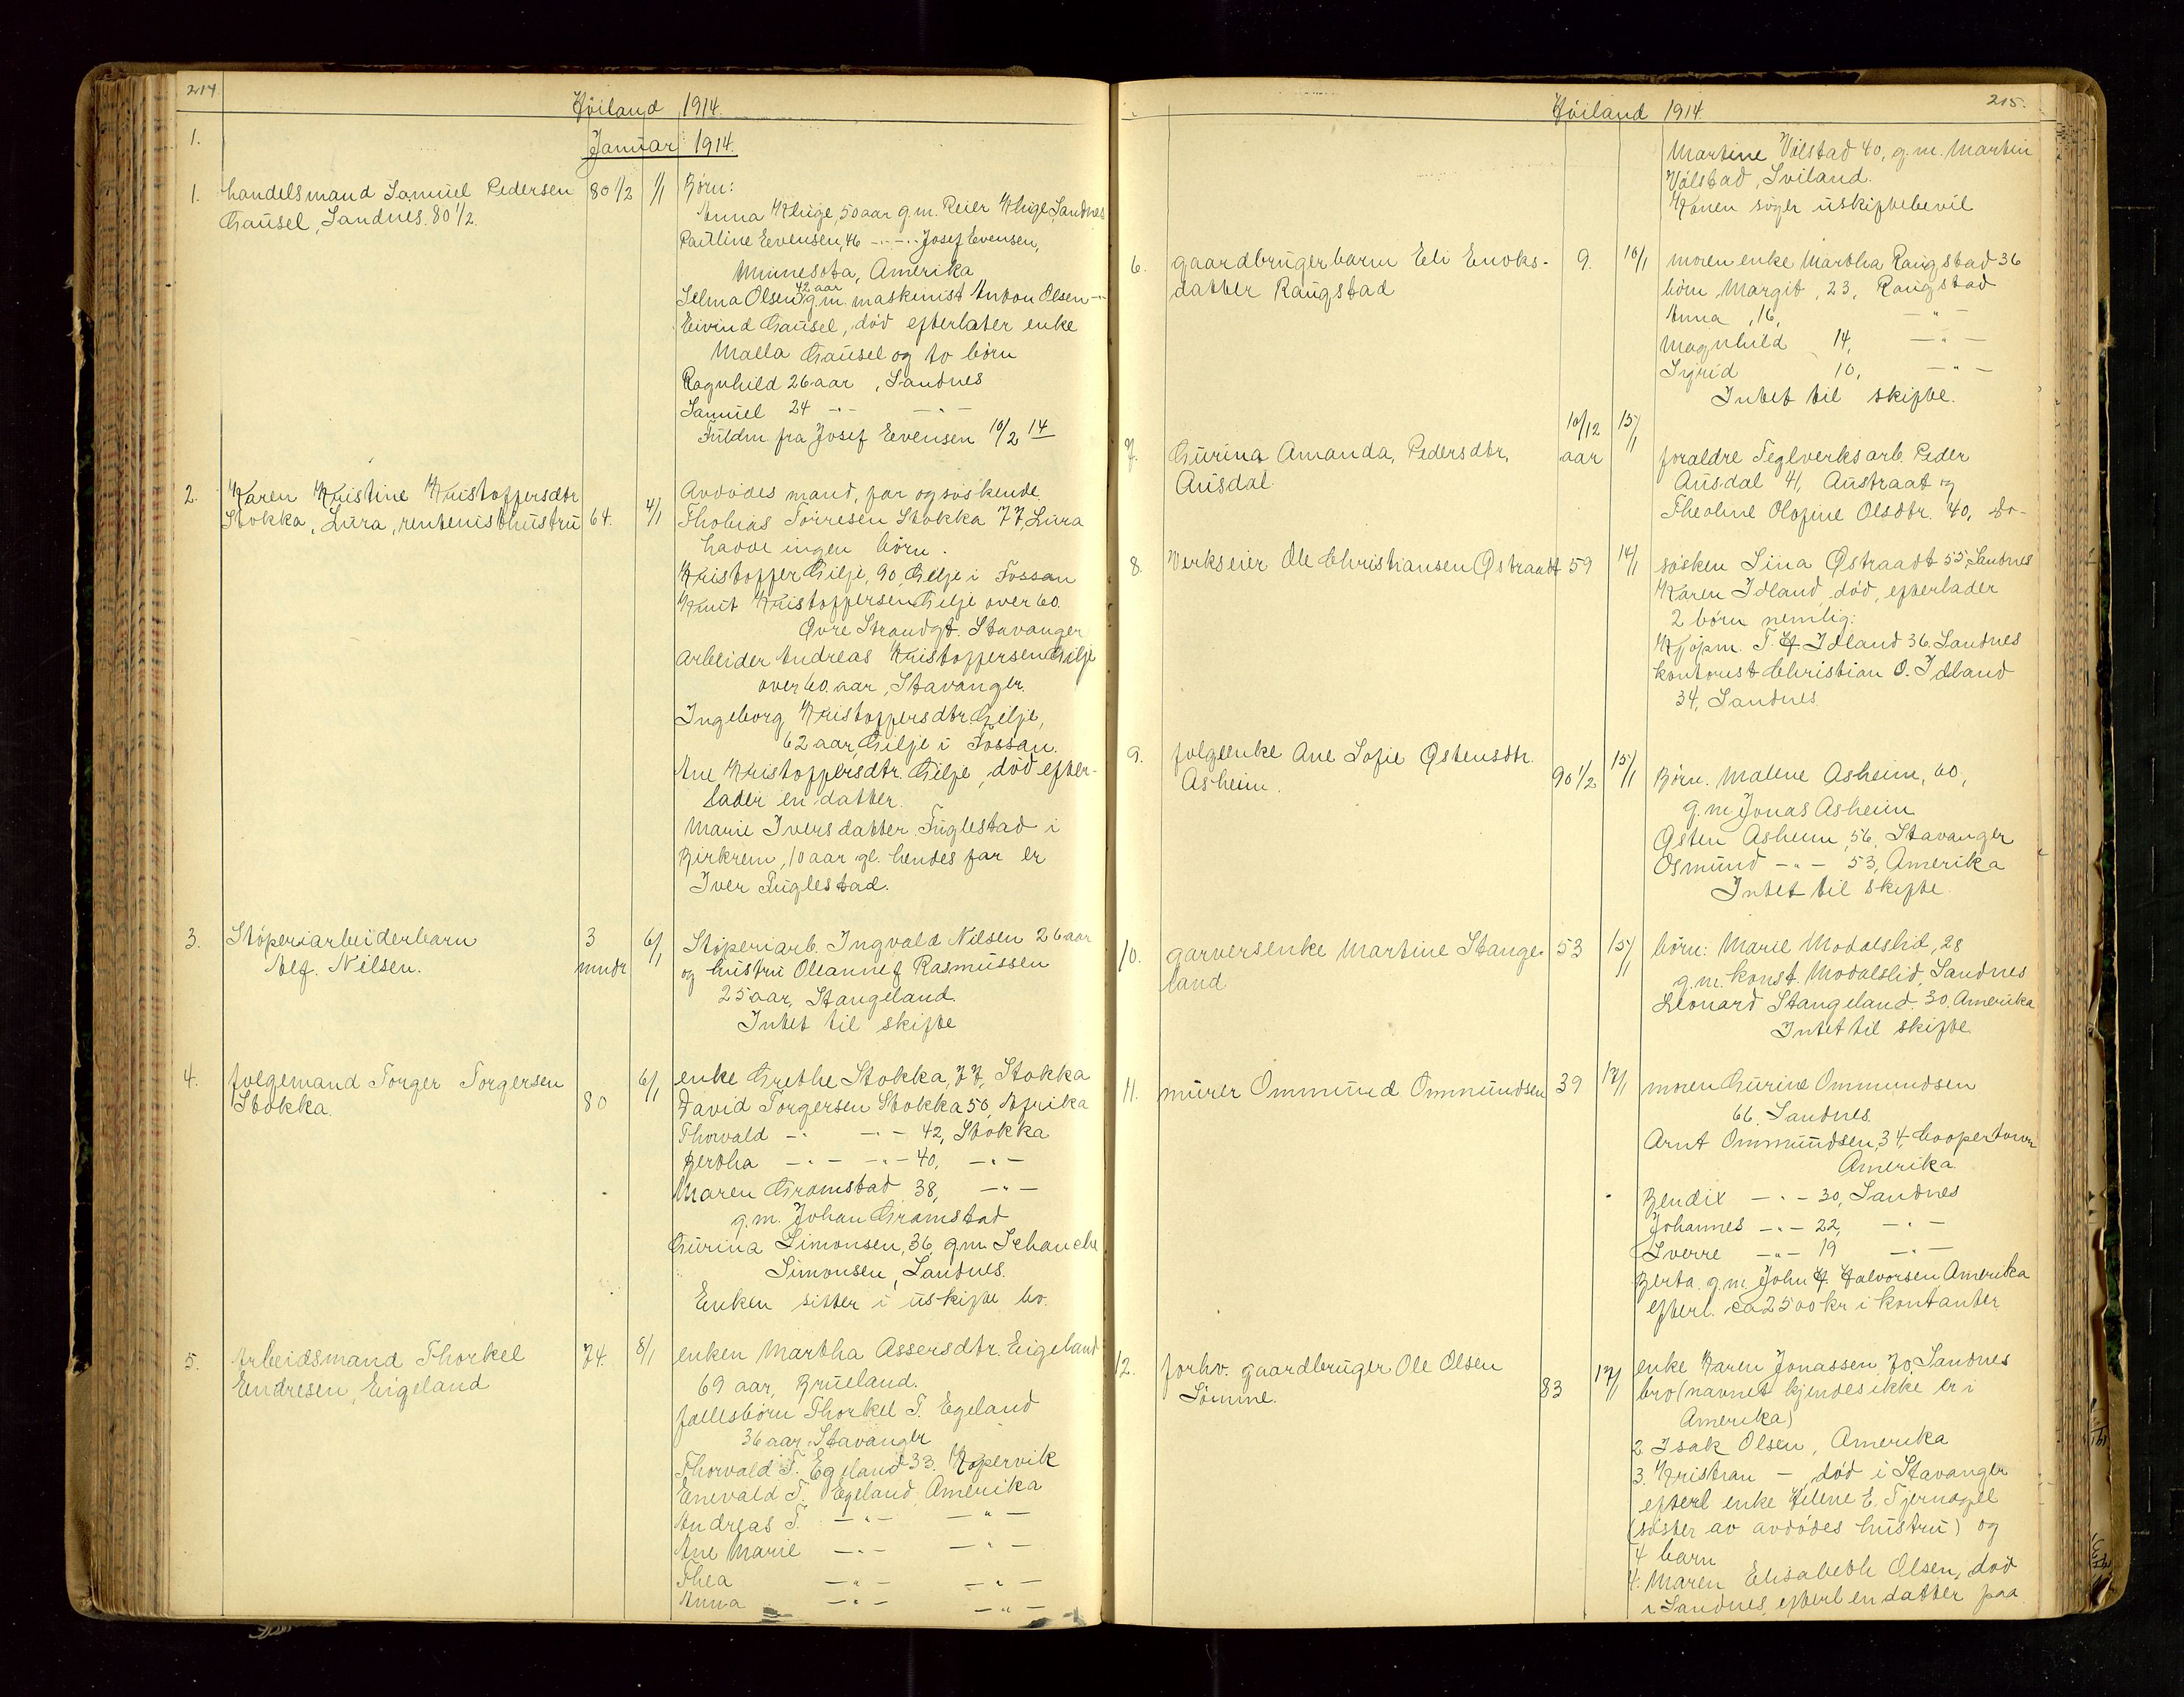 214
Höiland 1914.
1.
Januar 1914.
1. handelsmand Samuel Pedersen 80 1/2 1/1 Börn:
Gausel, Sandnes. 80 1/2.
Anna Kluge, 50 aar g.m. Reier Kluge, Sandnes
Pauline Evensen, 46 -"- -"- Josef Evensen,
Minnesota, Amerika
Selma Olsen 42 aar g.m. maskinist Anton Olsen -"-
Eivind Gausel, död efterlater enke
Malla Gausel og to börn
Ragnhild 26 aar, Sandnes
Samuel 24 -"- -"-
Fuldm fra Josef Evensen 10/2 14
2. Karen Kristine Kristoffersdtr
Stokka, Lura, rentenisthustru 64. 4/1
Avdödes mand, far og söskende.
Thobias Torresen Stokka 77, Lura
havde ingen börn.
Kristoffer Gilje, 90, Gilje i Fossan
Knut Kristoffersen Gilje over 60.
Övre Strandgt. Stavanger
arbeider Andreas Kristoffersen Gilje
over 60. aar, Stavanger.
Ingeborg Kristoffersdtr Gilje,
62 aar, Gilje i Fossan.
Ane Kristoffersdtr. Gilje, död efter-
lader en datter.
Marie Iversdatter Fuglestad i
Birkrem, 10 aar gl. hendes far er
Iver Fuglestad.
3. Stöperiarbeiderbarn 3 6/1 Stöperiarb. Ingvald Nilsen 26 aar
Alf. Nilsen. mndr og hustru Oleanne f Rasmussen
25 aar, Stangeland.
Intet til skifte
4. folgemand Torger Torgersen 6/1 enke Grethe Stokka, 77, Stokka
Stokka. 80 David Torgersen Stokka 50, Afrika
Thorvald -"- -"- 42, Stokka
Bertha -"- -"- 40, -"-
Maren Gramstad 38, -"-
g.m. Johan Gramstad
Gurina Simonsen, 36, g.m. Schanche
Simonsen, Sandnes.
Enken sitter i uskifte bo.
5. Arbeidsmand Thorkel 74. 8/1 enken Martha Assersdtr. Eigeland
Endresen, Eigeland 69 aar, Brueland.
fællesbörn Thorkel T. Egeland
36 aar Stavanger
Thorvald T. Egeland 33. Kopervik
Enevald T. Egeland Amerika
Andreas T. -"- -"-
Ane Marie -"- -"-
Thea -"- -"-
Anna -"- -"-
Höiland 1914. 215.
Martine Völstad 40, g.m. Martin
Völstad, Sviland.
Konen söger uskiftebevil
6. gaardbrugerbarn Eli Enoks- 9. 10/1 moren enke Martha Raugstad 36
datter Raugstad börn Margit, 23, Raugstad
Anna, 16, -"-
Magnhild 14, -"-
Ingrid 10, -"-
Intet til skifte.
7. Gurina Amanda, Pedersdtr, 10/12 aar 13/1
Ausdal
foraldre Teglverksarb. Peder
Ausdal 41, Austraat og
Theoline Olofine Olsdtr. 40, do-
8. Verkseier Ole Christiansen Østraadt 59 14/1 søsken Sina Østraadt 55, Sandnes
Karen Idland, död, efterlader
2 börn nemlig:
Kjöpm. T. H Idland 36. Sandnes
kontorist Christian O. Idland
34, Sandnes
9. folgeenke Ane Sofie Østensdtr.
Asheim. 90 1/2 15/1 Börn. Malene Asheim, 60,
g.m Jonas Asheim
Østen Asheim, 56, Stavanger
Osmund -"- 53, Amerika
Intet til skifte.
10. garversenke Martine Stange- 53 15/1 börn: Marie Modalslid, 28
land g.m. konst. Modalslid, Sandnes
Leonard Stangeland, 30, Amerika
Intet til skifte.
11. murer Ommund Ommundsen 39 17/1 moren Gurine Ommundsen
66. Sandnes.
Arnt Ommundsen, 34, Coopertown
Amerika.
Bendix -"- 30, Sandnes
Johannes -"- 22, -"-
Sverre -"- 19 -"-
Berta. g.m. John H. Halvorsen Amerika
efterl. ca 2500 kr i kontanter
12. forhv. gaardbruger Ole Olsen 83 17/1 enke Karen Jonassen 70, Sandnes
Sömme. bro (navnet kjendes ikke er i
Amerika)
2 Isak Olsen, Amerika
3. Kristian - död i Stavanger
efterl enke Helene E. Tjernagel
(söster av avdödes hustru) og
4 barn
4. Maren Elisabeth Olsen, död
i Sandnes, efterl en datter paa